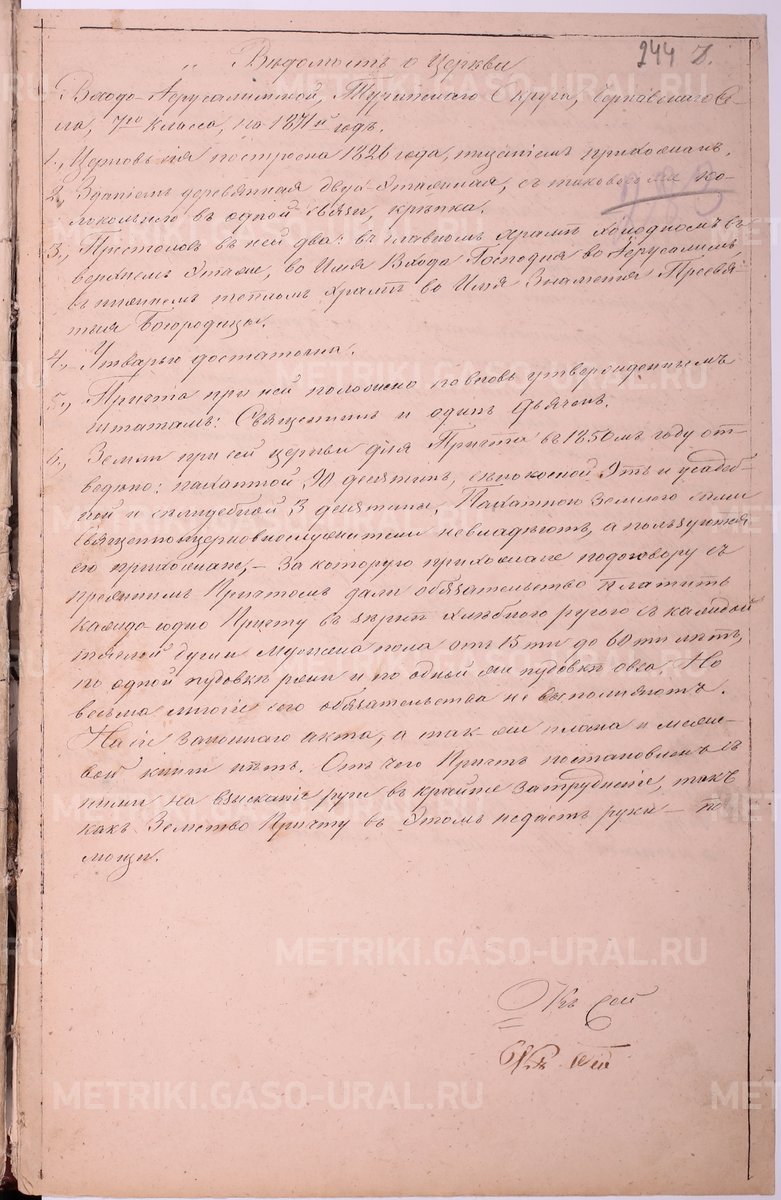 244
Вѣдомость о Церкви
Входо-Іерусалимской, Округа,
ла, 7го класса, на 1871й годъ.
1., Церковь сія построена 1826 года, тщаніемъ прихожанъ.
2., Зданіемъ деревянная двухъ-этажная, съ таковою же ко-
локольнею въ одной связи, крѣпка.
3., Престоловъ въ ней два: въ главномъ храмѣ холодномъ въ
верхнемъ этажѣ, во Имя Входа Господня во Іерусалимъ,
въ нижнемъ тепломъ храмѣ во Имя Знаменія Пресвя-
тыя Богородицы.
4., Утварью достаточна.
5., Причта при ней положено по вновь утвержденнымъ
штатамъ: Священникъ и одинъ Дьячекъ.
6., Земли при сей церкви для Причта въ 1850мъ году от-
ведено: пахатной 90 десятинъ, сѣнокосной 9ть и усадеб-
ной и селидебной 3 десятины. Пахатною Землею сами
Священноцерковнослужители невладѣютъ, а пользуются
ею прихожане, – за которую прихожане подоговору съ
прежнимъ Причтомъ дали обязательство платить
каждо-годно Причту въ хлѣбною ругою съ каждой
души мужеска пола отъ 15ти до 60ти лѣтъ,
по одной пудовкѣ ржи и по одной же пудовкѣ овса. Но
весьма многіе сего обязательства не выполняютъ.
На сіе Законнаго акта, а такъ-же плана и меже-
вой книги нѣтъ. Отъ чего Причтъ постановленъ съ
ними на взысканіе руги въ крайнее затрудненіе, такъ
какъ Земство Причту въ Этомъ недастъ руки – по
мощи.
Къ сей